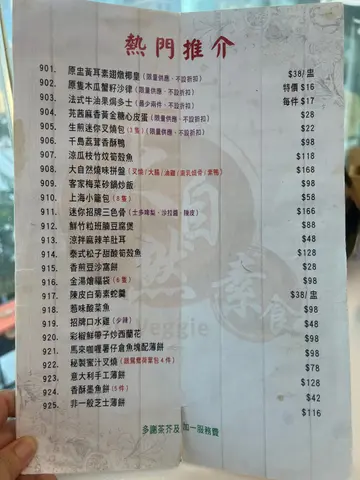 熱門推介
901. 原盅黃耳素甜燉椰皇 (限量供應,不設折扣) $38/盅
902. 原隻木瓜蟹籽沙律 (限量供應,不設折扣) 特價 $16
903. 法式牛油果焗多士 (最少兩件,不設折扣) 每件 $17
904. 芫茜麻香黃金糖心皮蛋 (限量供應,不設折扣) $28
905. 生煎迷你叉燒包 (3隻) (限量供應,不設折扣) $22
906. 千島荔茸香酥鴨 $98
907. 涼瓜枝竹炆筍殼魚 $118
908. 大自然燒味拼盤 (叉燒/大腸/油雞/南乳燒骨/素鴨) $168
909. 客家梅菜砂鍋炒飯 $98
910. 上海小籠包 (8隻) $58
911. 迷你招牌三色骨 (士多啤梨、沙拉醬、陳皮) $166
912. 鮮竹粒班腩豆腐煲 $88
913. 涼拌麻辣羊肚耳 $48
914. 泰式松子甜酸筍殼魚 $128
915. 香煎豆沙窩餅 $58
916. 金湯燴福袋 (6隻) $98
917. 陳皮白菊素蛇羹 $38/盅
918. 惹味酸菜魚 $98
919. 招牌口水雞 (少辣) $48
920. 彩椒鮮帶子炒西蘭花 $98
921. 馬來咖喱薯仔倉魚塊配薄餅 $98
922. 秘製蜜汁叉燒 (跳鴛鴦荷葉包4件) $78
923. 意大利手工薄餅 $128
924. 香酥墨魚餅 (5件) $42
925. 非一般芝士薄餅 $116
大自然素食
Veggie
多謝茶芥及加一服務費